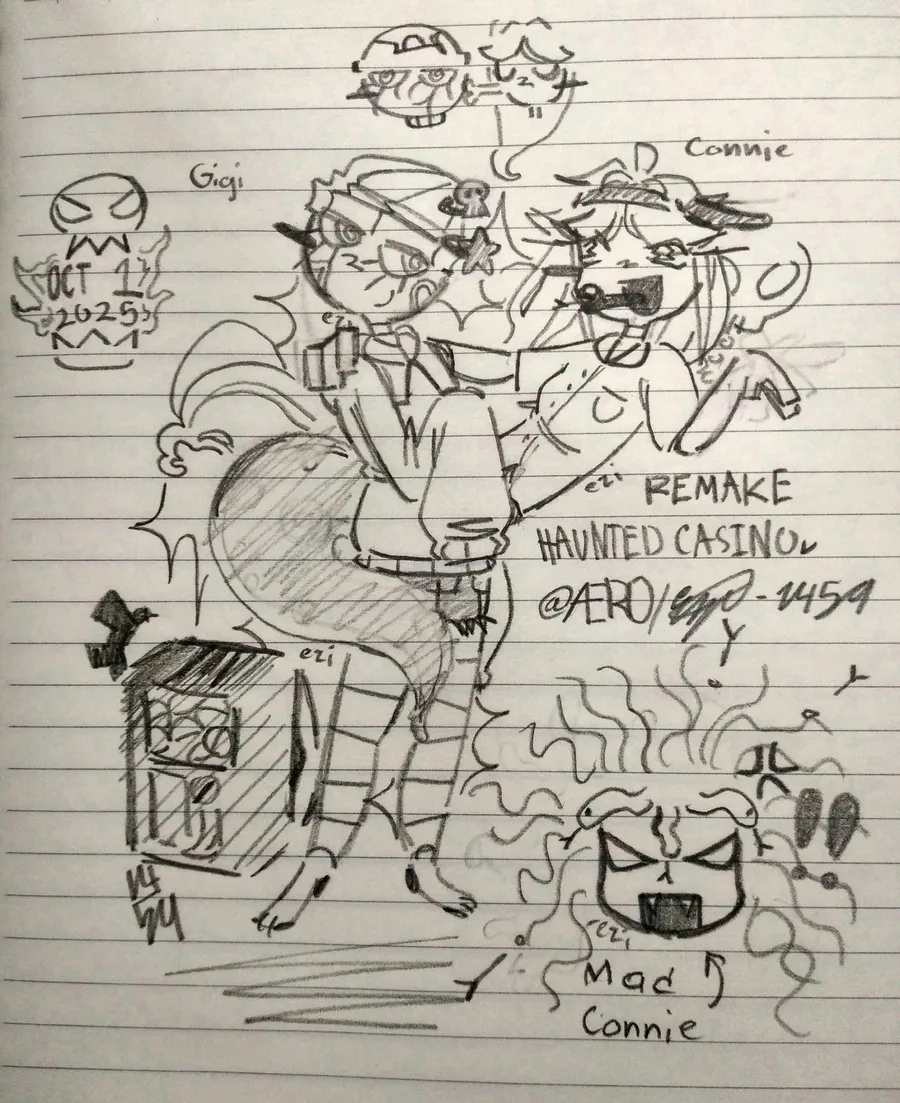 Connie
Gigi
OCT 1
2025
ezi
ezi
REMAKE
HAUNTED CASINO
@ÆRO/ - 1459
ezi
ezi
Mad
Connie